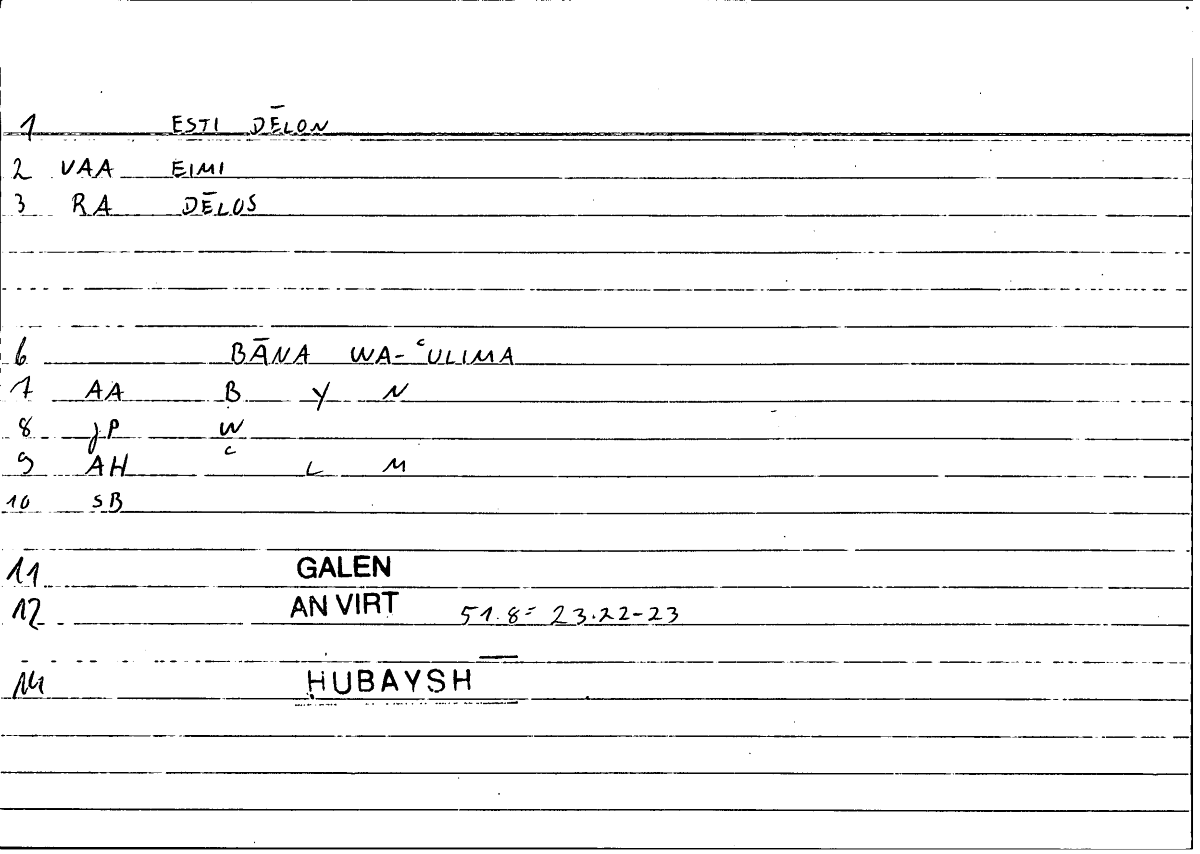 1 ESTI DĒLON
2 VAA EIMI
3 RA DĒLOS
6 BĀNA WA-ʿULIMA
7 AA B Y N
8 JP W
9 AH ʿ L M
10 SB
11 GALEN
12 AN VIRT 51.8= 23.22-23
14 ḤUBAYSH